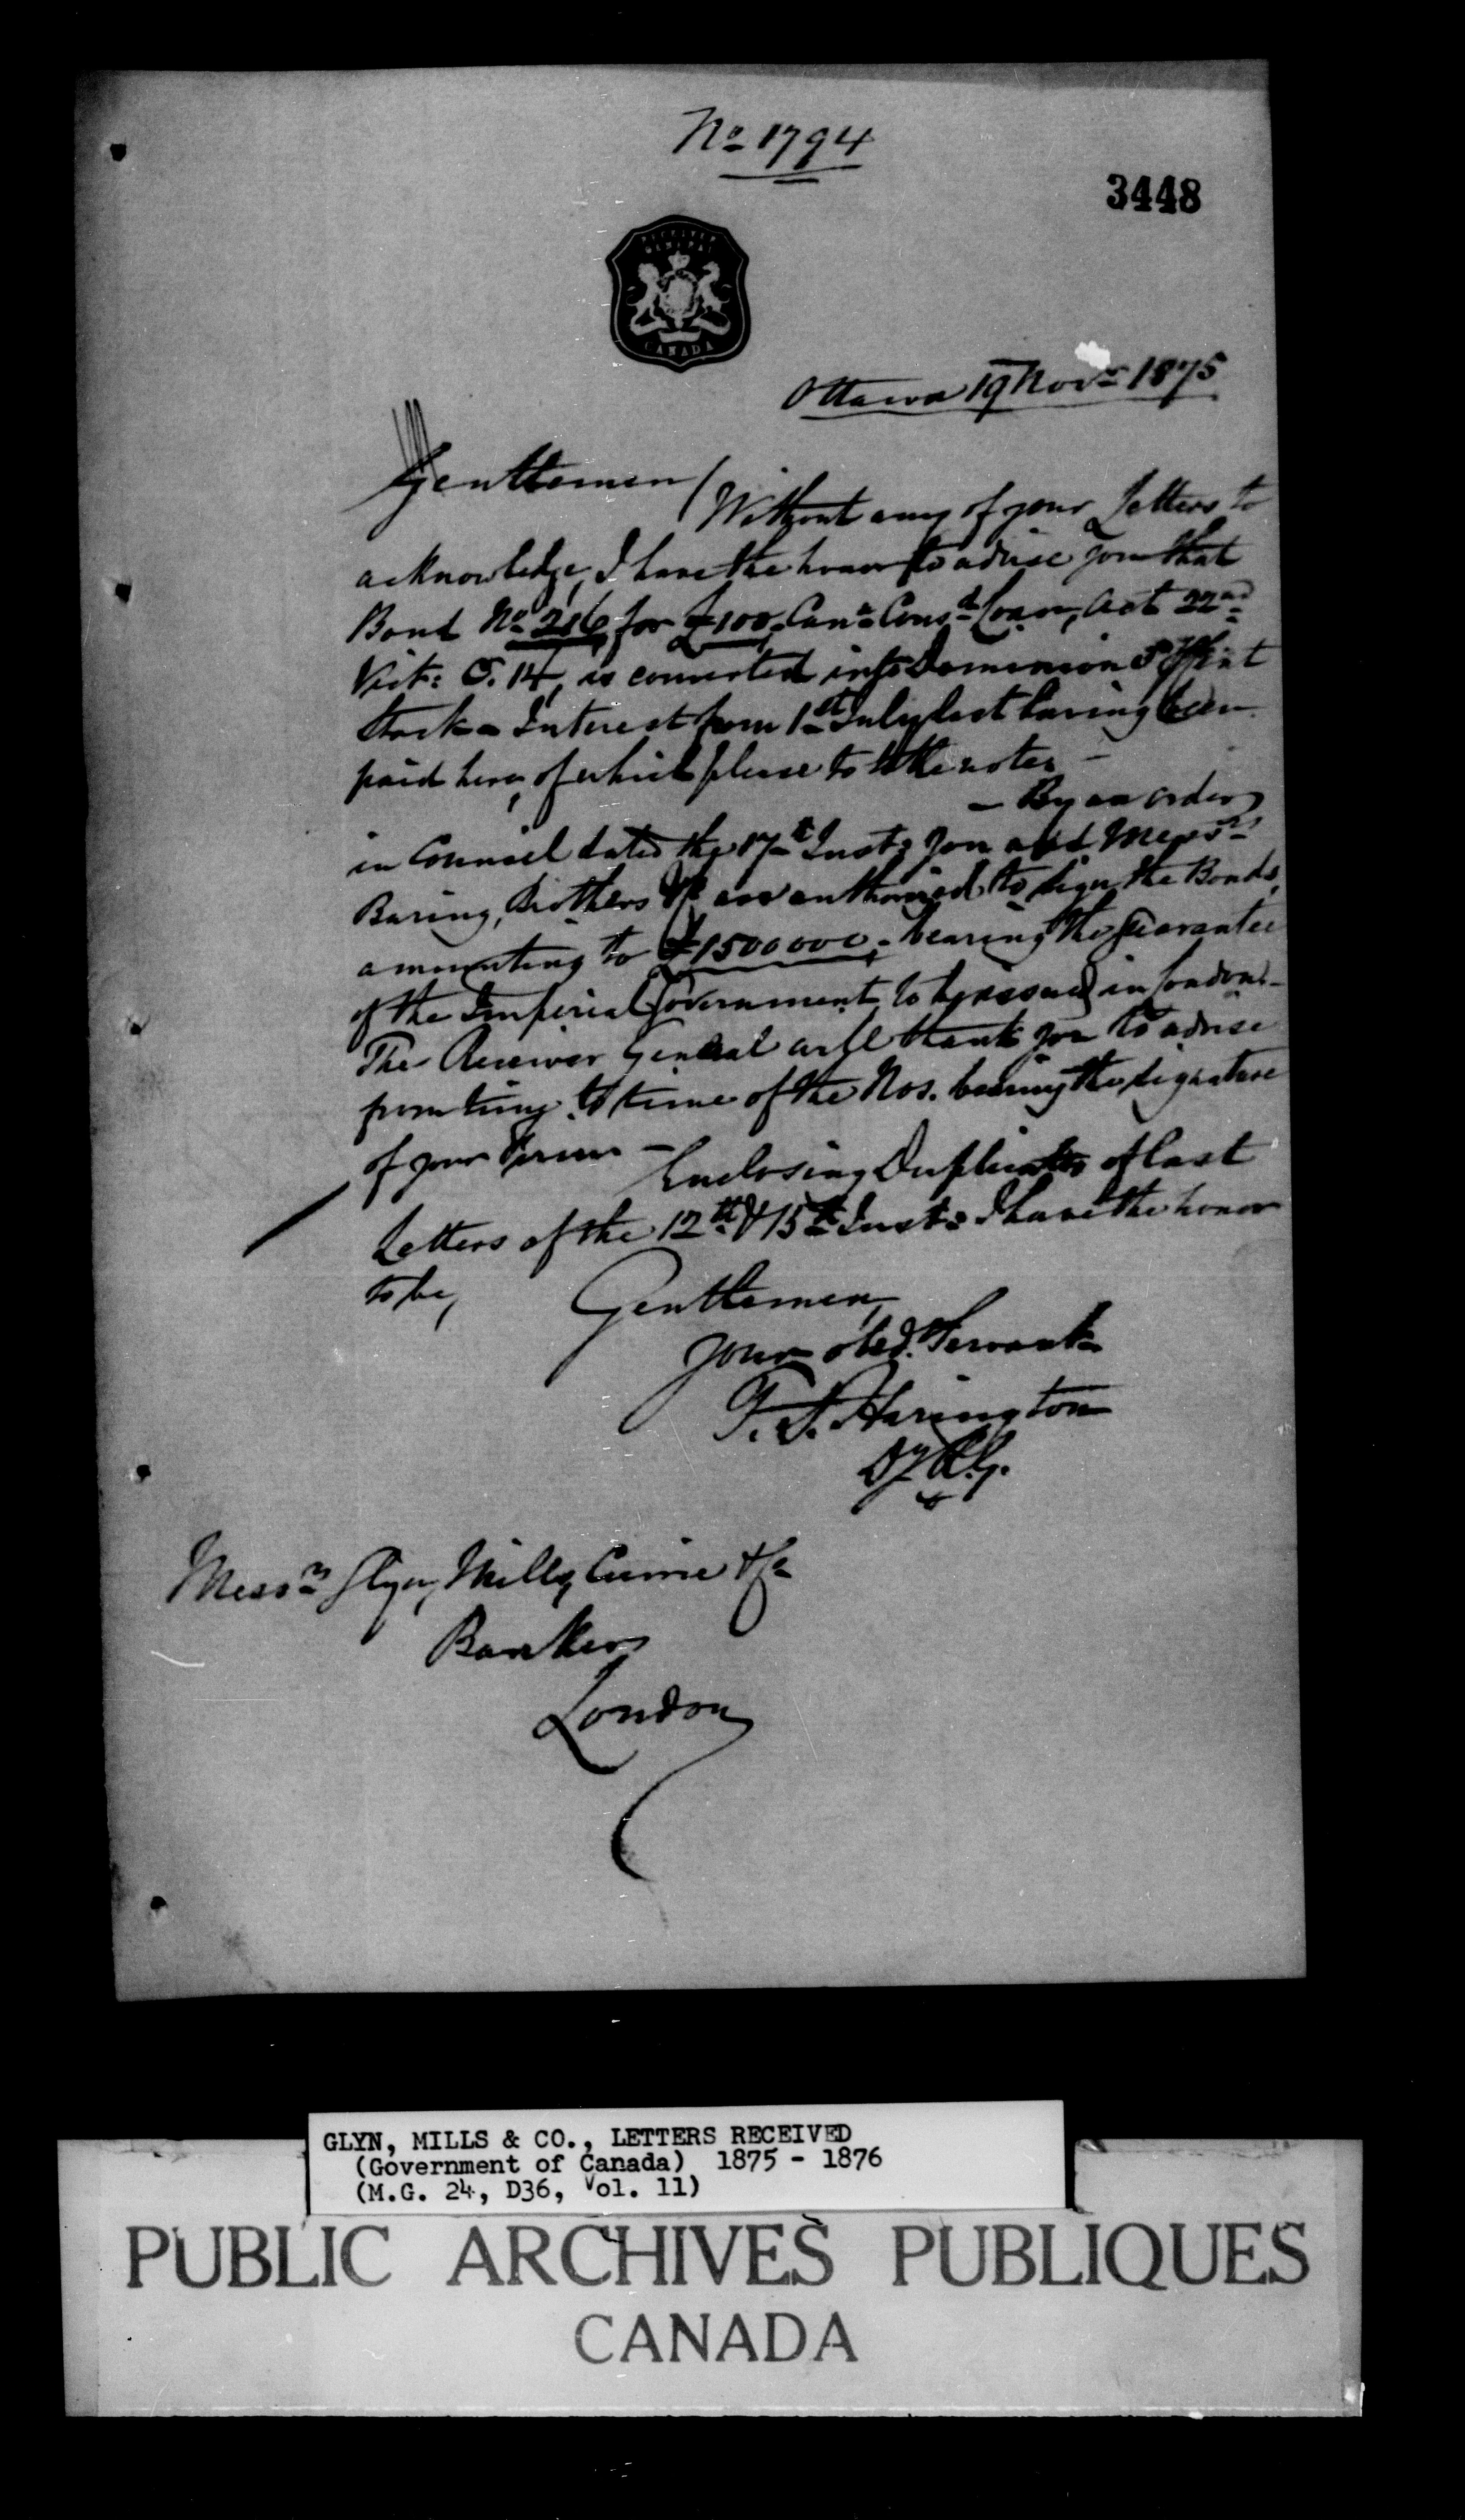 No 1794
3448
RECEIVER
GENERAL
CANADA
Ottawa 19 Novr 1875
Gentlemen/
Without any of your Letters to
acknowledge, I have the honor to advise you that
Bond No 216 for £100. Cana Consd Loan, Act 22nd
Vict: C. 14, is converted into Dominion 5 P Cent
Stock - Interest from 1st July last having been
paid here, of which please to take note. -
- By an order
in Council dated the 17th Inst: you and Messrs
Baring, Brothers & Co are authorised to sign the Bonds,
amounting to £1500000, - bearing the Guarantee
of the Imperial Government, to be issued in London. -
The Receiver General will thank you to advise
from time to time of the Nos. bearing the signature
of your Firm -
Enclosing Duplicates of last
Letters of the 12th & 15th Inst: I have the honor
to be,
Gentlemen,
Your obed. Servant
T. D. Harington
Dy R.G.
Messrs Glyn, Mills, Currie & Co
Bankers
London
GLYN, MILLS & CO., LETTERS RECEIVED
(Government of Canada) 1875 - 1876
(M.G. 24, D36, Vol. 11)
PUBLIC ARCHIVES PUBLIQUES
CANADA